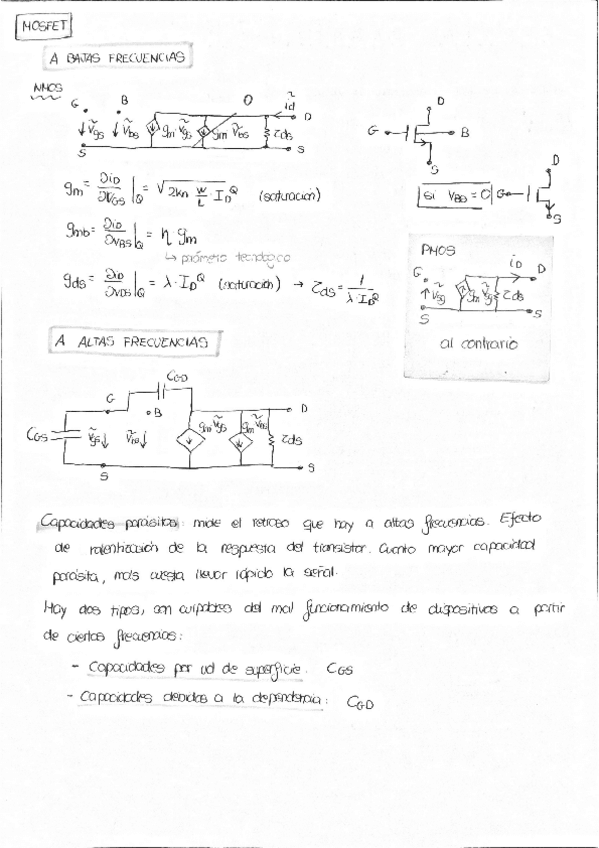 MOSFET
A BAJAS FRECUENCIAS
NMOS
G B O ĩd D
ṽgs ṽbs gm ṽgs gm ṽbs rds
S S
D
G B
S
gm = ∂iD/∂VGS |Q = √(2kn W/L · IDQ) (saturación)
si VBS = 0 G D S
gmb = ∂iD/∂VBS |Q = η gm
↳ parámetro tecnológico
gds = ∂iD/∂VDS |Q = λ · IDQ (saturación) → rds = 1/(λ · IDQ)
PMOS
G iD D
ṽsg gm ṽsg rds
S S
al contrario
A ALTAS FRECUENCIAS
CGD
G B D
CGS ṽgs ṽbs gm ṽgs gm ṽbs rds
S S
Capacidades parásitas: mide el retraso que hay a altas frecuencias. Efecto
de ralentización de la respuesta del transistor. Cuanto mayor capacidad
parásita, más cuesta llevar rápido la señal.
Hay dos tipos, son culpables del mal funcionamiento de dispositivos a partir
de ciertas frecuencias:
- Capacidades por ud de superficie. CGS
- Capacidades debidas a la dependencia: CGD